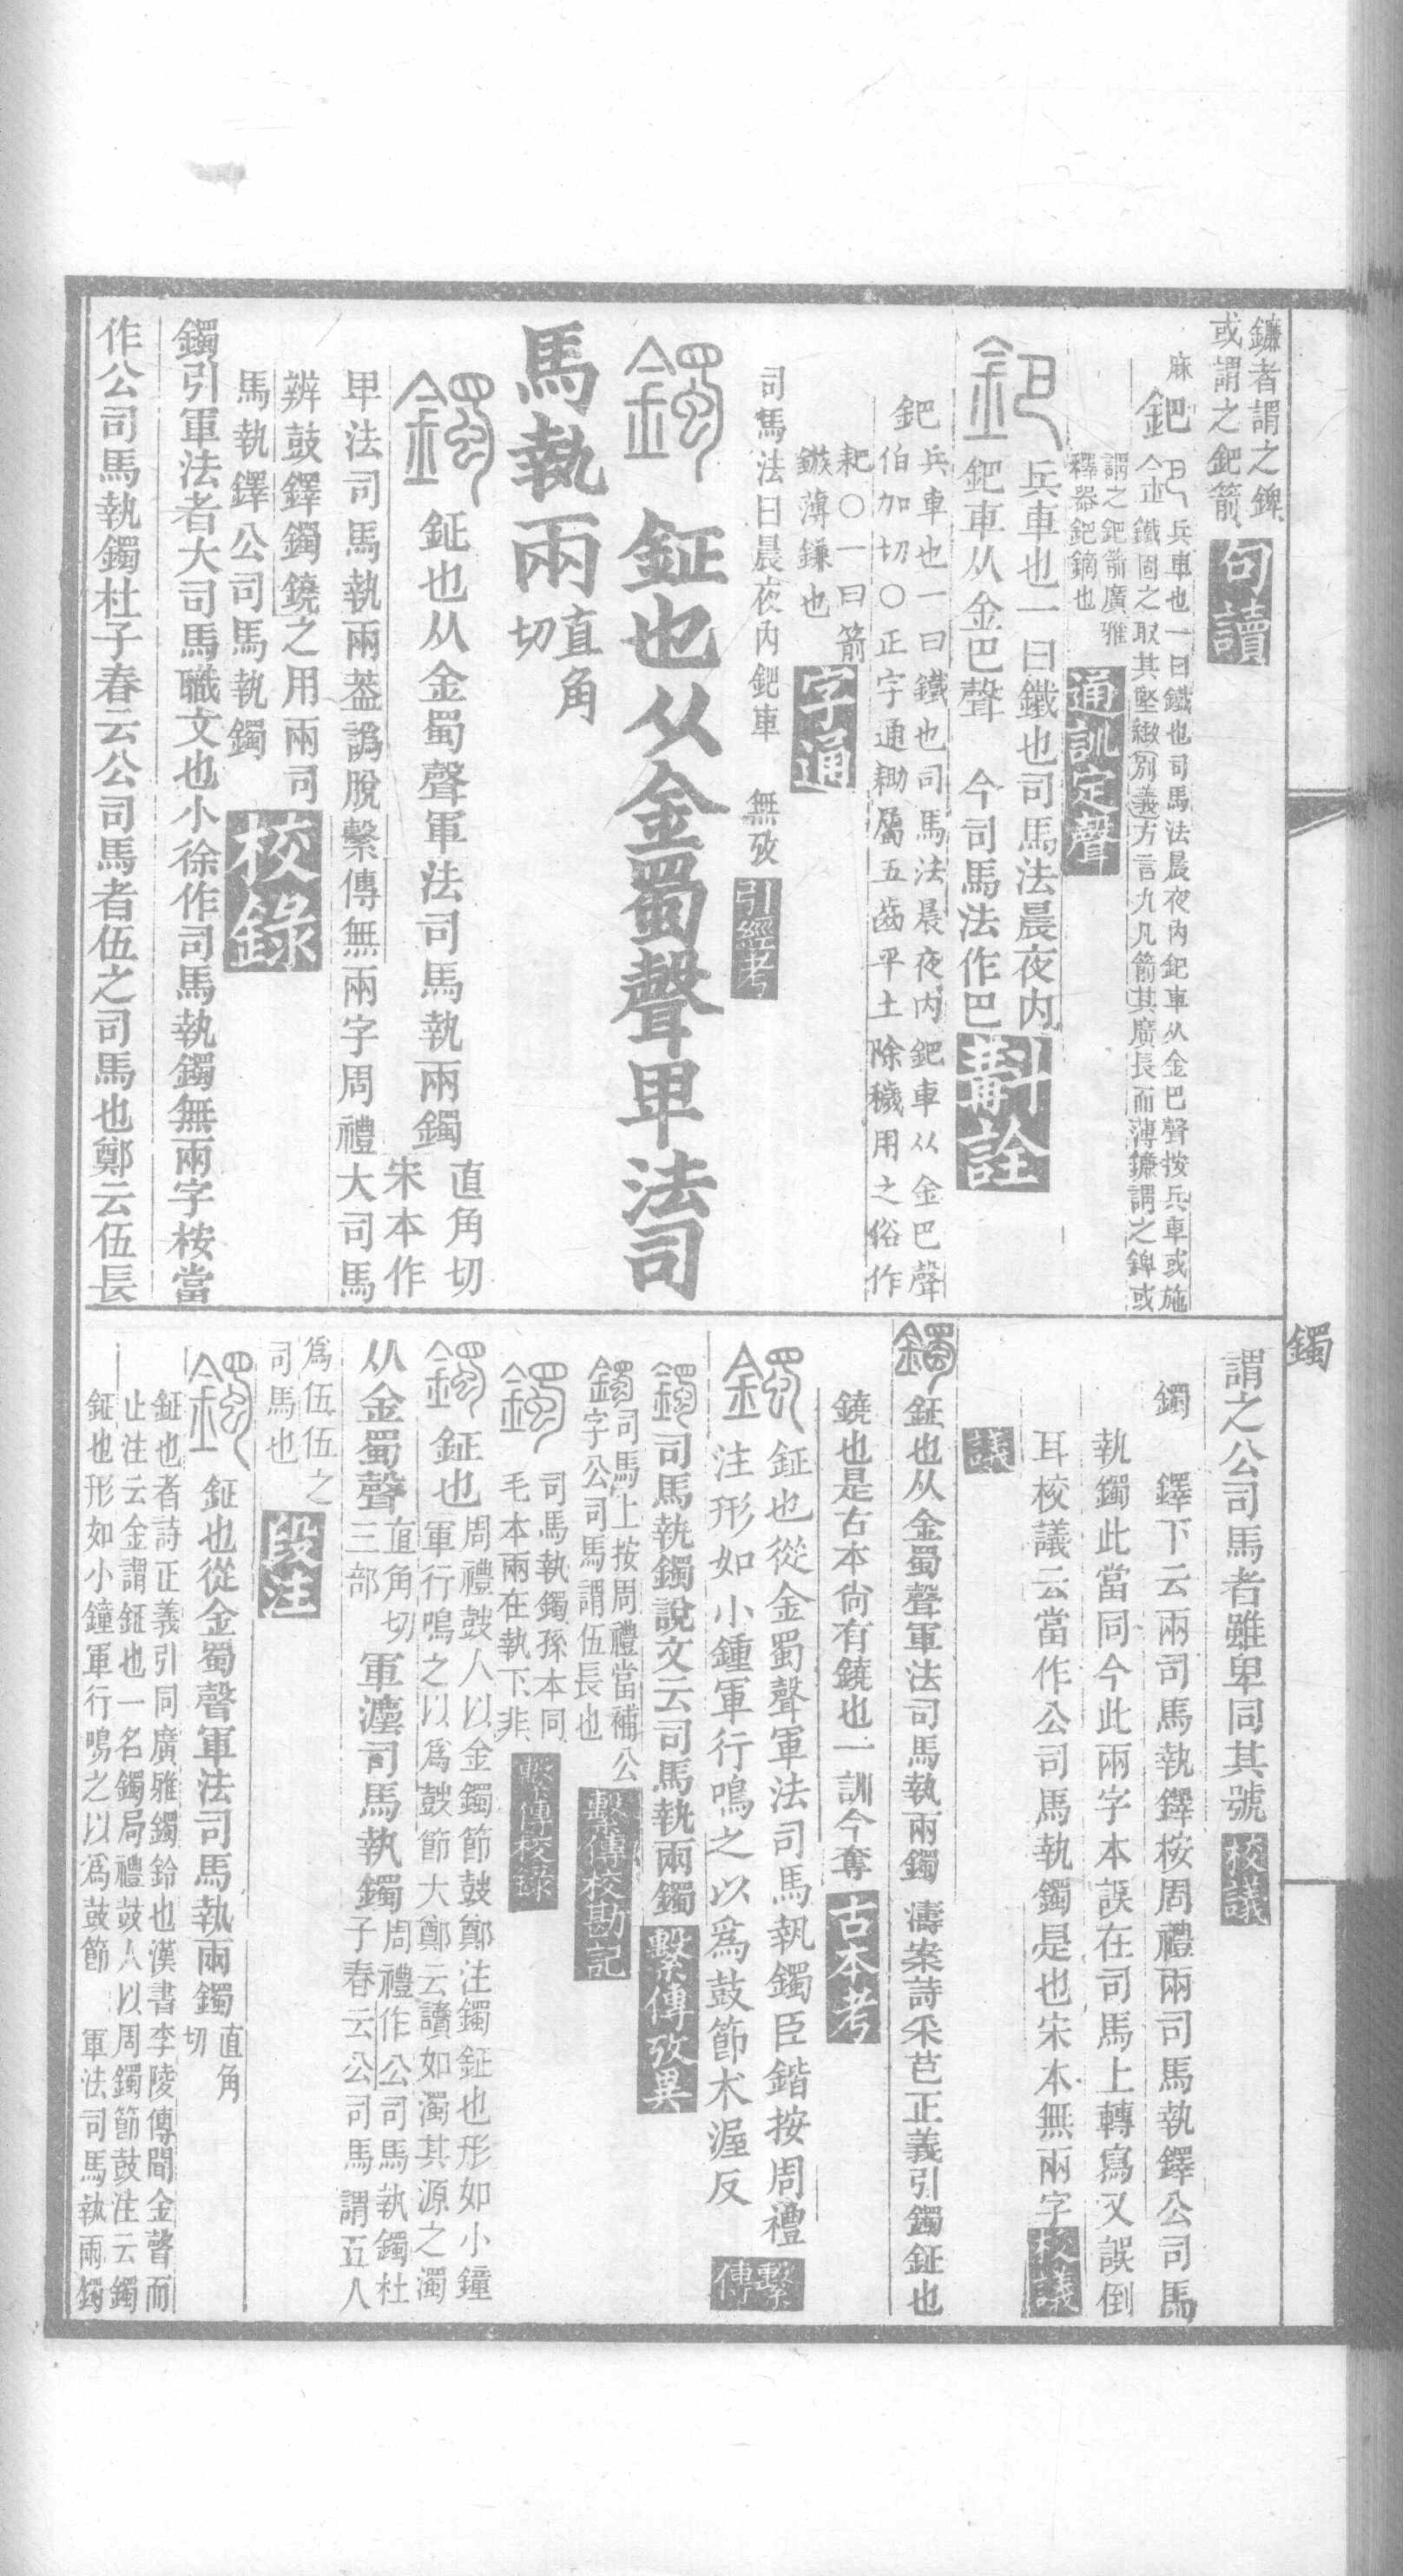 鐮者謂之錍
或謂之鈀箭 句讀
麻 鈀 兵車也一曰鐵也司馬法晨夜內鈀車从金巴聲按兵車或施
鐵固之取其堅緻別義方言九凡箭其廣長而薄鐮謂之錍或
謂之鈀箭廣雅
釋器鈀鏑也 通訓定聲
鈀 兵車也一曰鐵也司馬法晨夜內
鈀車从金巴聲 今司馬法作巴 斠詮
鈀 兵車也一曰鐵也司馬法晨夜內鈀車从金巴聲
伯加切○正字通耡屬五齒平土除穢用之俗作
耙○一曰箭
鏃薄鐮也 字通
司馬法曰晨夜內鈀車 無攷 引經考
鐲 鉦也从金蜀聲軍法司
馬執兩 直角
切
鐲 鉦也从金蜀聲軍法司馬執兩鐲 直角切
宋本作
甲法司馬執兩葢譌脫繫傳無兩字周禮大司馬
辨鼓鐸鐲鐃之用兩司
馬執鐸公司馬執鐲 校錄
鐲引軍法者大司馬職文也小徐作司馬執鐲無兩字桉當
作公司馬執鐲杜子春云公司馬者伍之司馬也鄭云伍長
鐲
謂之公司馬者雖卑同其號 校議
鐲 鐸下云兩司馬執鐸桉周禮兩司馬執鐸公司馬
執鐲此當同今此兩字本誤在司馬上轉寫又誤倒
耳校議云當作公司馬執鐲是也宋本無兩字 校議
議
鐲 鉦也从金蜀聲軍法司馬執兩鐲 濤案詩采芑正義引鐲鉦也
鐃也是古本尙有鐃也一訓今奪 古本考
鐲 鉦也從金蜀聲軍法司馬執鐲臣鍇按周禮
注形如小鍾軍行鳴之以爲鼓節朮渥反 繫傳
鐲司馬執鐲說文云司馬執兩鐲 繫傳攷異
鐲司馬上按周禮當補公
字公司馬謂伍長也 繫傳校勘記
鐲 司馬執鐲孫本同
毛本兩在執下非 繫傳校錄
鐲 鉦也 周禮鼓人以金鐲節鼓鄭注鐲鉦也形如小鐘
軍行鳴之以爲鼓節大鄭云讀如濁其源之濁
从金蜀聲 直角切
三部 軍灋司馬執鐲 周禮作公司馬執鐲杜
子春云公司馬謂五人
爲伍伍之
司馬也 段注
鐲 鉦也從金蜀聲軍法司馬執兩鐲 直角
切
鉦也者詩正義引同廣雅鐲鈴也漢書李陵傳聞金聲而
止注云金謂鉦也一名鐲周禮鼓人以周鐲節鼓注云鐲
鉦也形如小鐘軍行鳴之以爲鼓節 軍法司馬執兩鐲